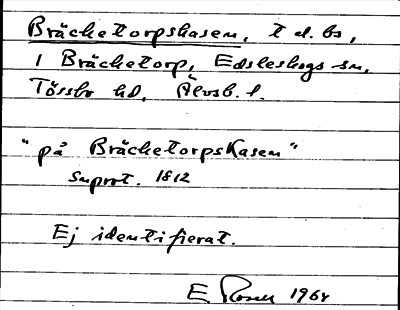 Bräcketorpskasen, t d. bs,
i Bräcketorp, Edsleskogs sn,
Tössbo hd, Älvsb. l.
"på BräcketorpsKasen"
Snprot. 1812
Ej identifierat.
E Rosell 1964